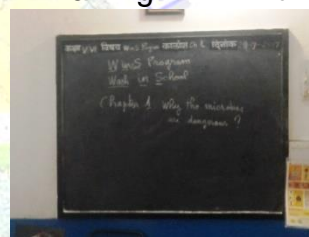 कक्षा V/VI विषय WinS Program कालांश दिनांक
WinS Program
Wash in School
Chapter 1 Why the microbes
are dangerous ?